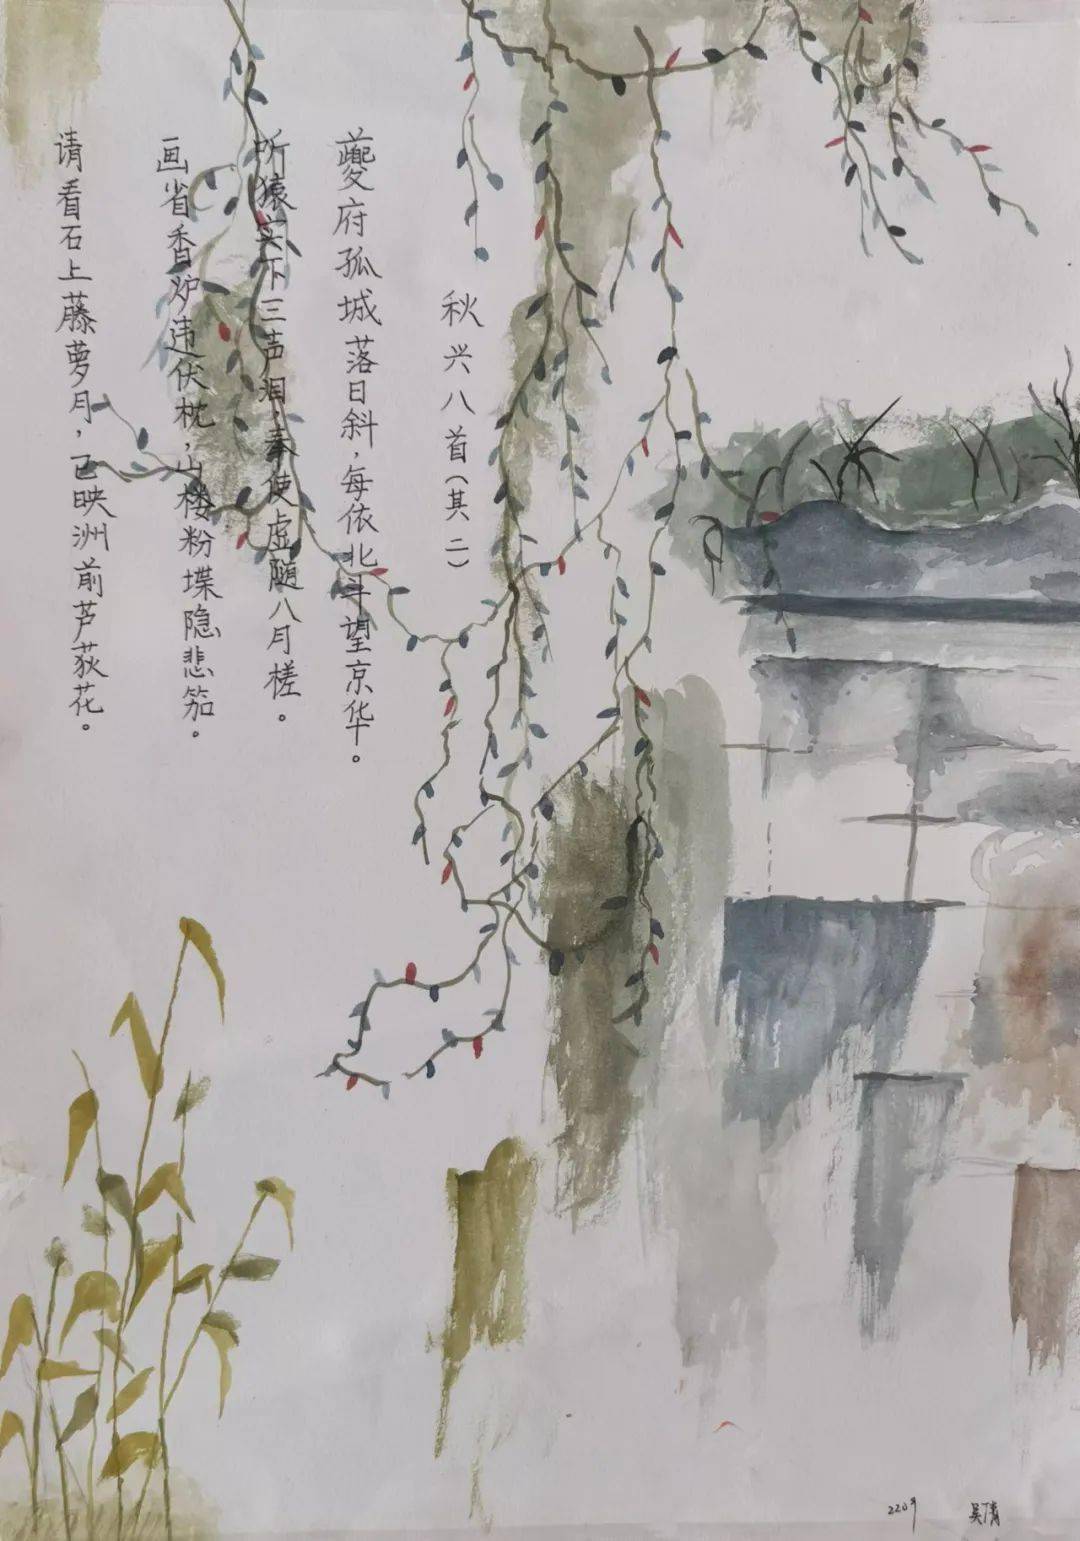 秋兴八首(其二)
夔府孤城落日斜,每依北斗望京华。
听猿实下三声泪,奉使虚随八月槎。
画省香炉违伏枕,山楼粉堞隐悲笳。
请看石上藤萝月,已映洲前芦荻花。
吴倩